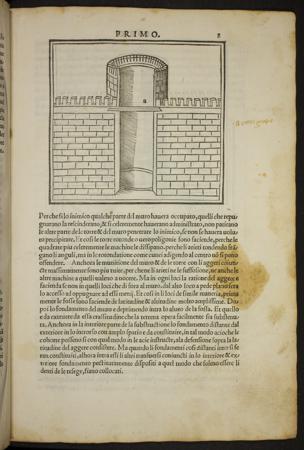 PRIMO. 8
a
Perche si lo inimico qualche parte del muro havera occupato, quelli che repu
gnarano la rescinderano, & si celermente haverano administrato, non patirano
le altre parte de le torre & del muro penetrare lo inimico,
precipitare, Et cosi le torre rotunde o vero poligonie sono faciende, perche le
quadrate piu celermente le machine le dissipano, perche li arieti
gano li anguli, ma in le rotundatione come cunei
offendere. Anchora la munitione del muro & de le torre con li aggeri coniun
cte maxissimamente sono piu tute, per che ne li arieti ne le suffossione, ne anche le
altre machine a quelli valeno a nocere. Ma in ogni loci la ratione del aggere e
facienda se non in quelli loci che di fora al muro, dal alto loco a pede plano
lo accesso ad oppugnare ad essi meni. Et cosi in li loci de simile maneria, prima
mente le fosse sono faciende de latitudine & altitudine molto amplissime. Da
poi lo fundamento del muro e deprimendo intra lo alveo de la fossa. Et quello
e da extruere da essa crassitudine che la terrena opera facilmente sia substenta
ta. Anchora in la interiore parte de la substructione lo fundamento distante dal
exteriore in lo introrso con amplo spatio e da constituire, in tal modo
cohorte possono si con qual modo in le acie instructe, a la defensione sopra la la
titudine del aggere consistere. Ma quando li fundamenti cosi distanti intra si se
ran constituiti, alhora intra essi li altri transversi coniuncti in lo interiore & ex
teriore fundamento pectinatamente dispositi a quel modo che soleno essere li
denti de le resege, siano collocati.